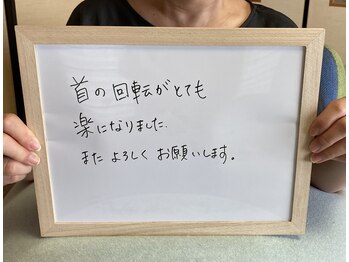 首の回転がとても
楽になりました.
また よろしく お願いします。